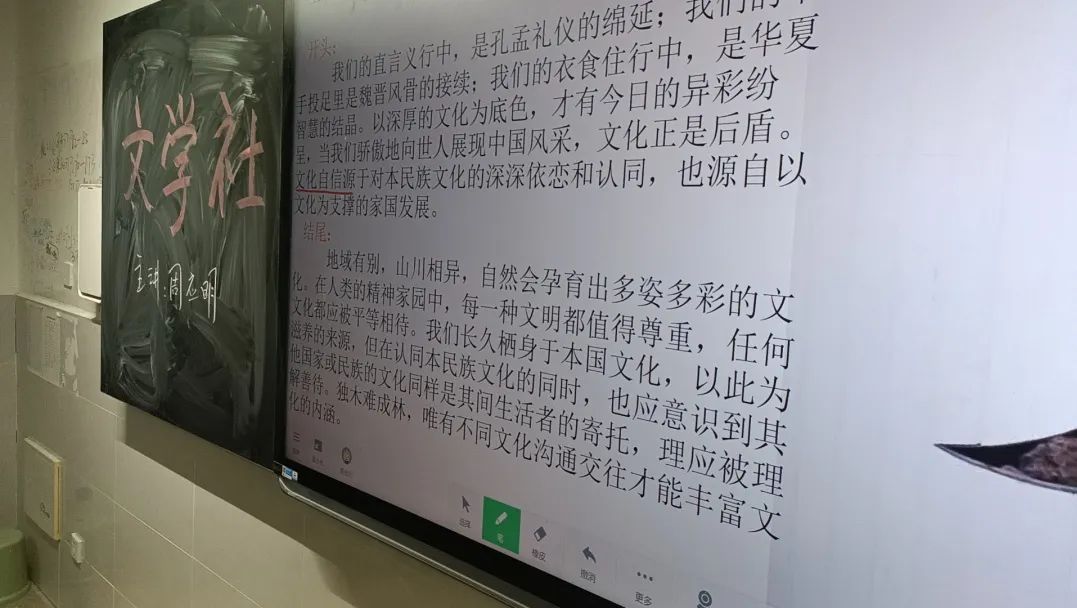 文学社
主讲:周志明
开头:
我们的直言义行中，是孔孟礼仪的绵延；我们的
手投足里是魏晋风骨的接续；我们的衣食住行中，是华夏
智慧的结晶。以深厚的文化为底色，才有今日的异彩纷
呈，当我们骄傲地向世人展现中国风采，文化正是后盾。
文化自信源于对本民族文化的深深依恋和认同，也源自以
文化为支撑的家国发展。
结尾:
地域有别，山川相异，自然会孕育出多姿多彩的文
化。在人类的精神家园中，每一种文明都值得尊重，任何
文化都应被平等相待。我们长久栖身于本国文化，以此为
滋养的来源，但在认同本民族文化的同时，也应意识到其
他国家或民族的文化同样是其间生活者的寄托，理应被理
解善待。独木难成林，唯有不同文化沟通交往才能丰富文
化的内涵。
选择
笔
橡皮
撤消
更多